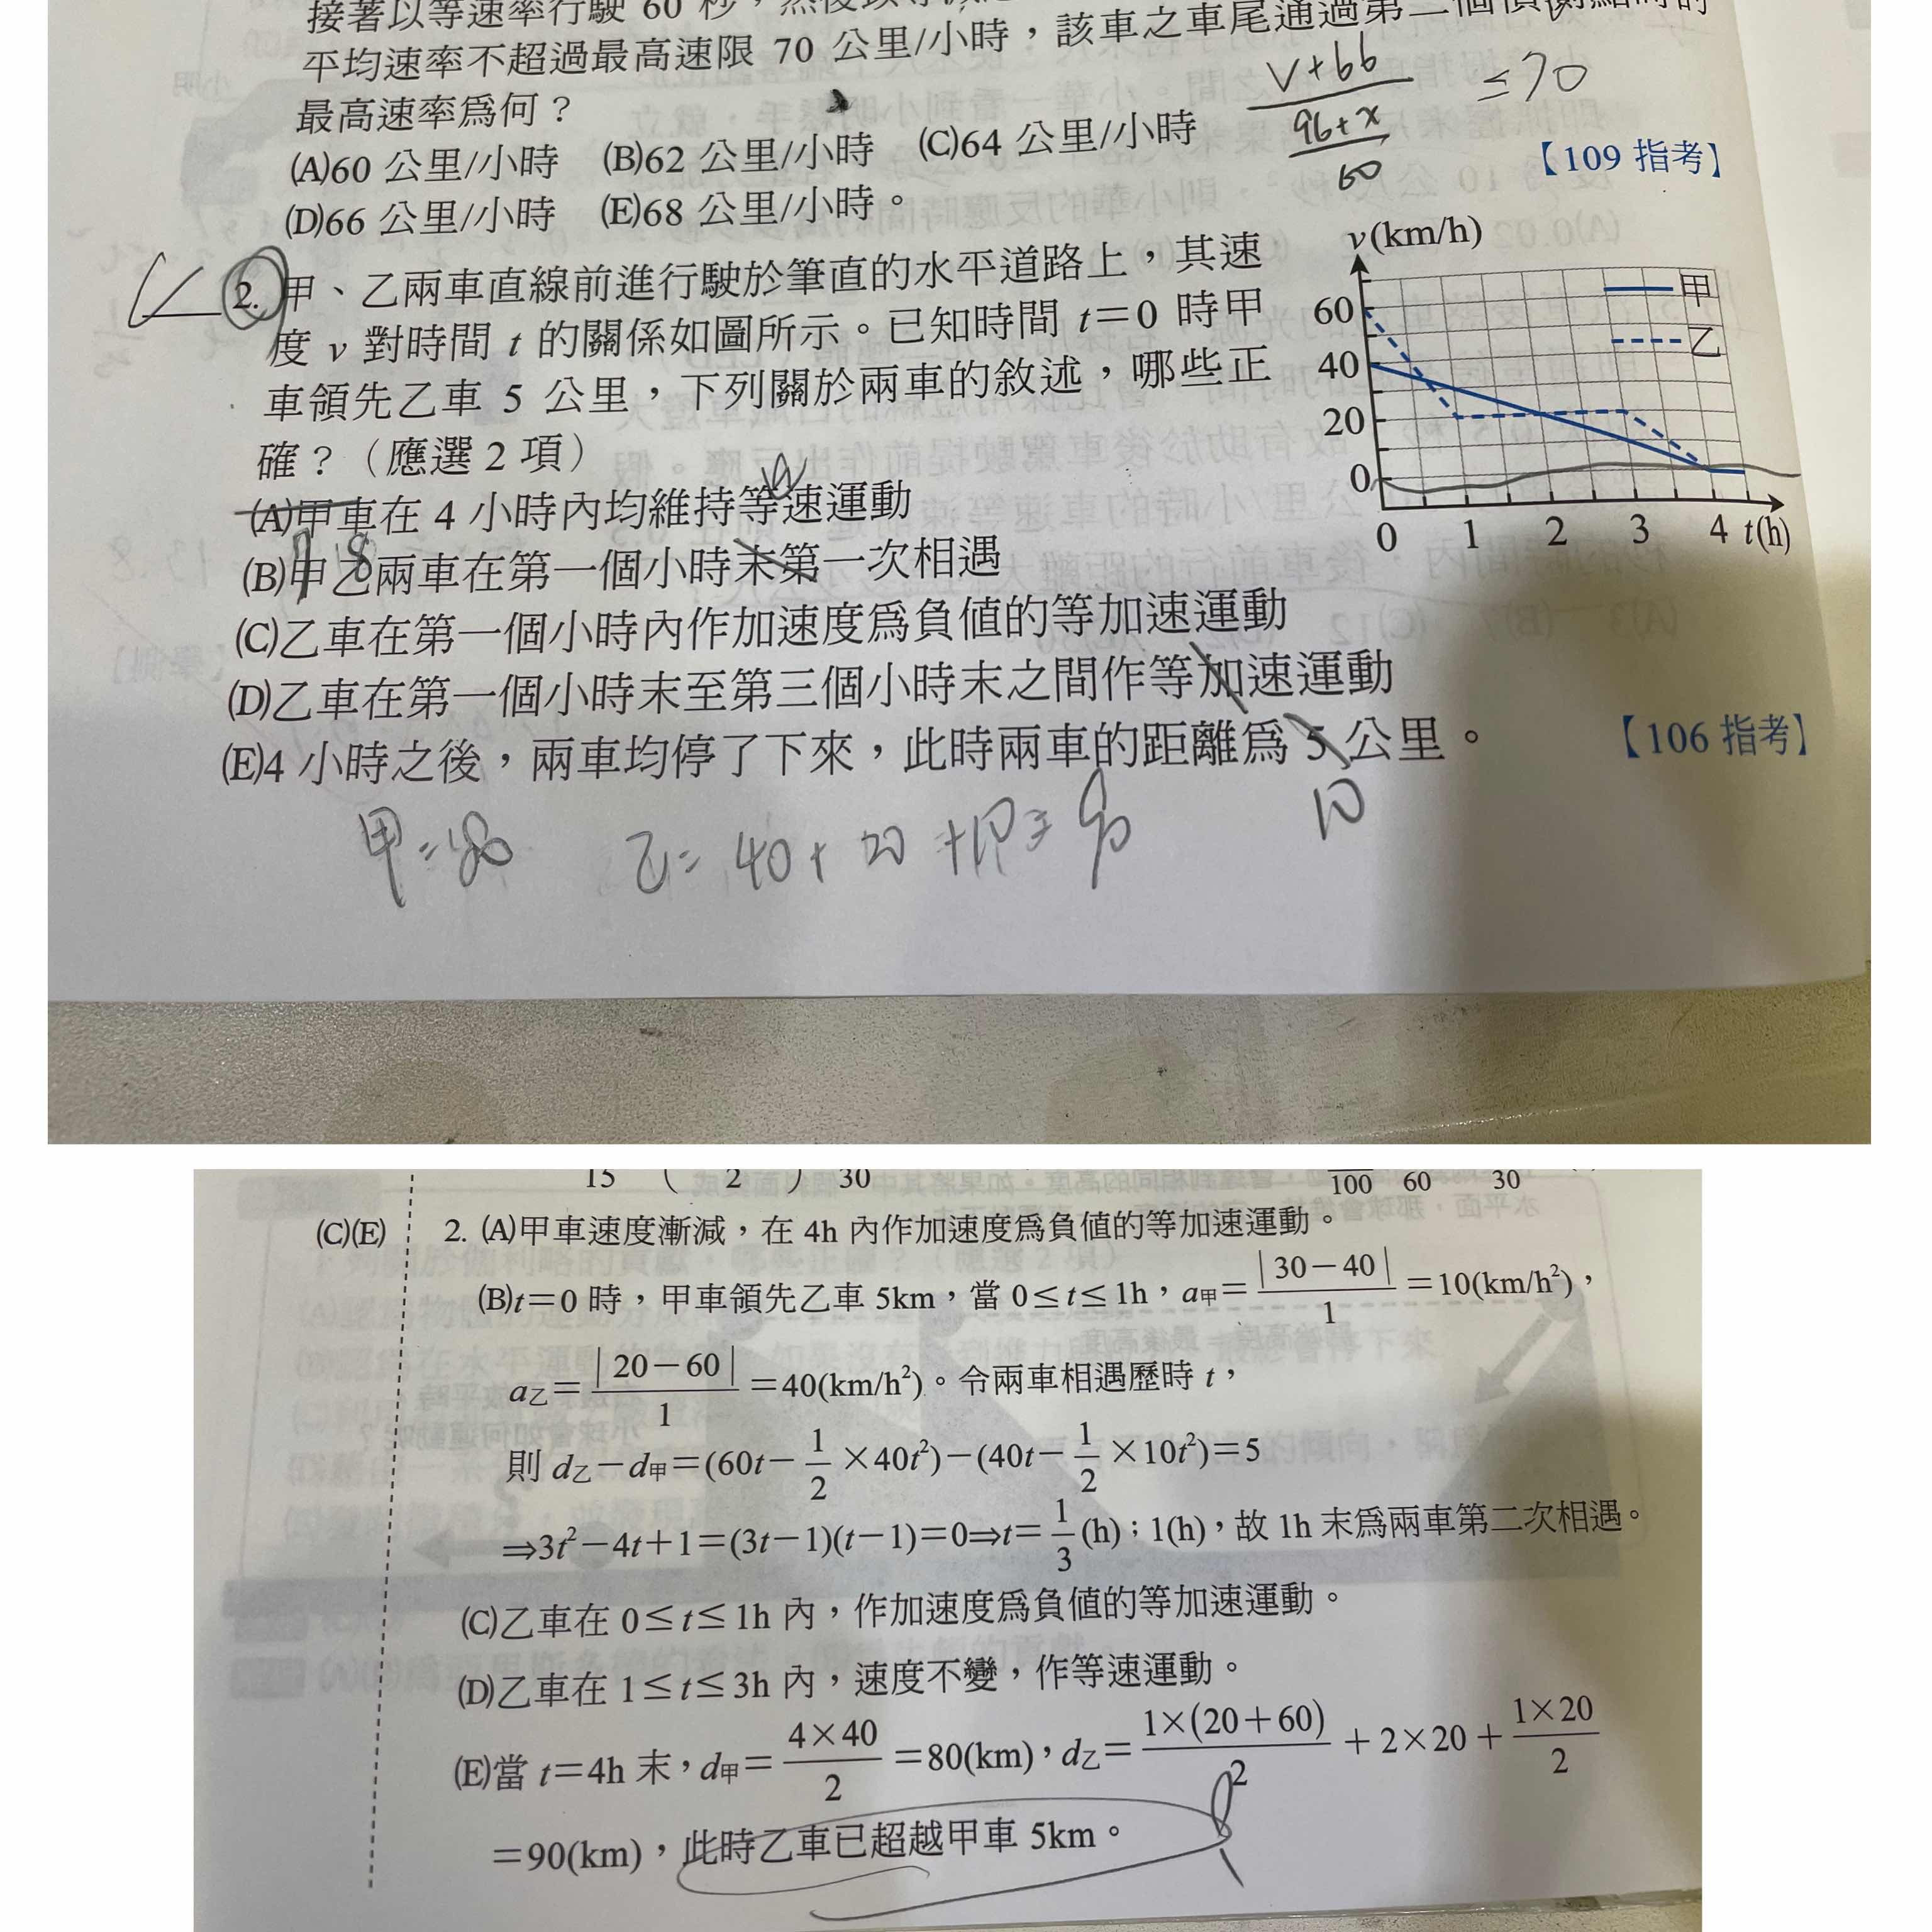 接著以等速率行駛 60 秒，然後以
平均速率不超過最高速限 70 公里/小時，該車之車尾通過第二個偵測點時的
最高速率為何？
(A)60 公里/小時 (B)62 公里/小時 (C)64 公里/小時
(D)66 公里/小時 (E)68 公里/小時。
【109 指考】
v+66
96+x
60
≤70
2. 甲、乙兩車直線前進行駛於筆直的水平道路上，其速
度 v 對時間 t 的關係如圖所示。已知時間 t=0 時甲
車領先乙車 5 公里，下列關於兩車的敘述，哪些正
確？（應選 2 項）
v(km/h)
甲
乙
60
40
20
0
0 1 2 3 4 t(h)
(A)甲車在 4 小時內均維持等速運動
(B)甲乙兩車在第一個小時末第一次相遇
(C)乙車在第一個小時內作加速度為負值的等加速運動
(D)乙車在第一個小時末至第三個小時末之間作等加速運動
(E)4 小時之後，兩車均停了下來，此時兩車的距離為 5 公里。
【106 指考】
10
甲=80
乙=40+
15 ( 2 ) 30
100 60 30
(C)(E) 2. (A)甲車速度漸減，在 4h 內作加速度為負值的等加速運動。
(B)t=0 時，甲車領先乙車 5km，當 0≤t≤1h，a甲=|30-40|/1=10(km/h²)，
a乙=|20-60|/1=40(km/h²)。令兩車相遇歷時 t，
則 d乙-d甲=(60t-1/2×40t²)-(40t-1/2×10t²)=5
⇒3t²-4t+1=(3t-1)(t-1)=0⇒t=1/3(h)；1(h)，故 1h 末為兩車第二次相遇。
(C)乙車在 0≤t≤1h 內，作加速度為負值的等加速運動。
(D)乙車在 1≤t≤3h 內，速度不變，作等速運動。
(E)當 t=4h 末，d甲=4×40/2=80(km)，d乙=1×(20+60)/2+2×20+1×20/2
=90(km)，此時乙車已超越甲車 5km。